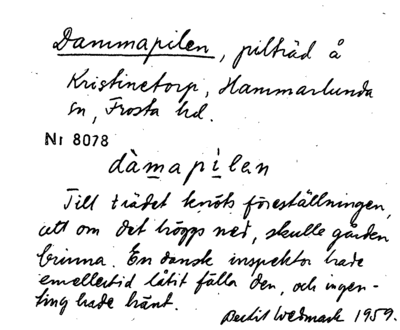 Dammapilen, pilträd å
Kristinetorp, Hammarlunda
sn, Frosta hd.
Nr 8078
dàmapìlan
Till trädet knöts föreställningen,
att om det höggs ned, skulle gården
brinna. En dansk inspektor hade
emellertid låtit fälla den, och ingen-
ting hade hänt.
Bertil Wedmark 1959.